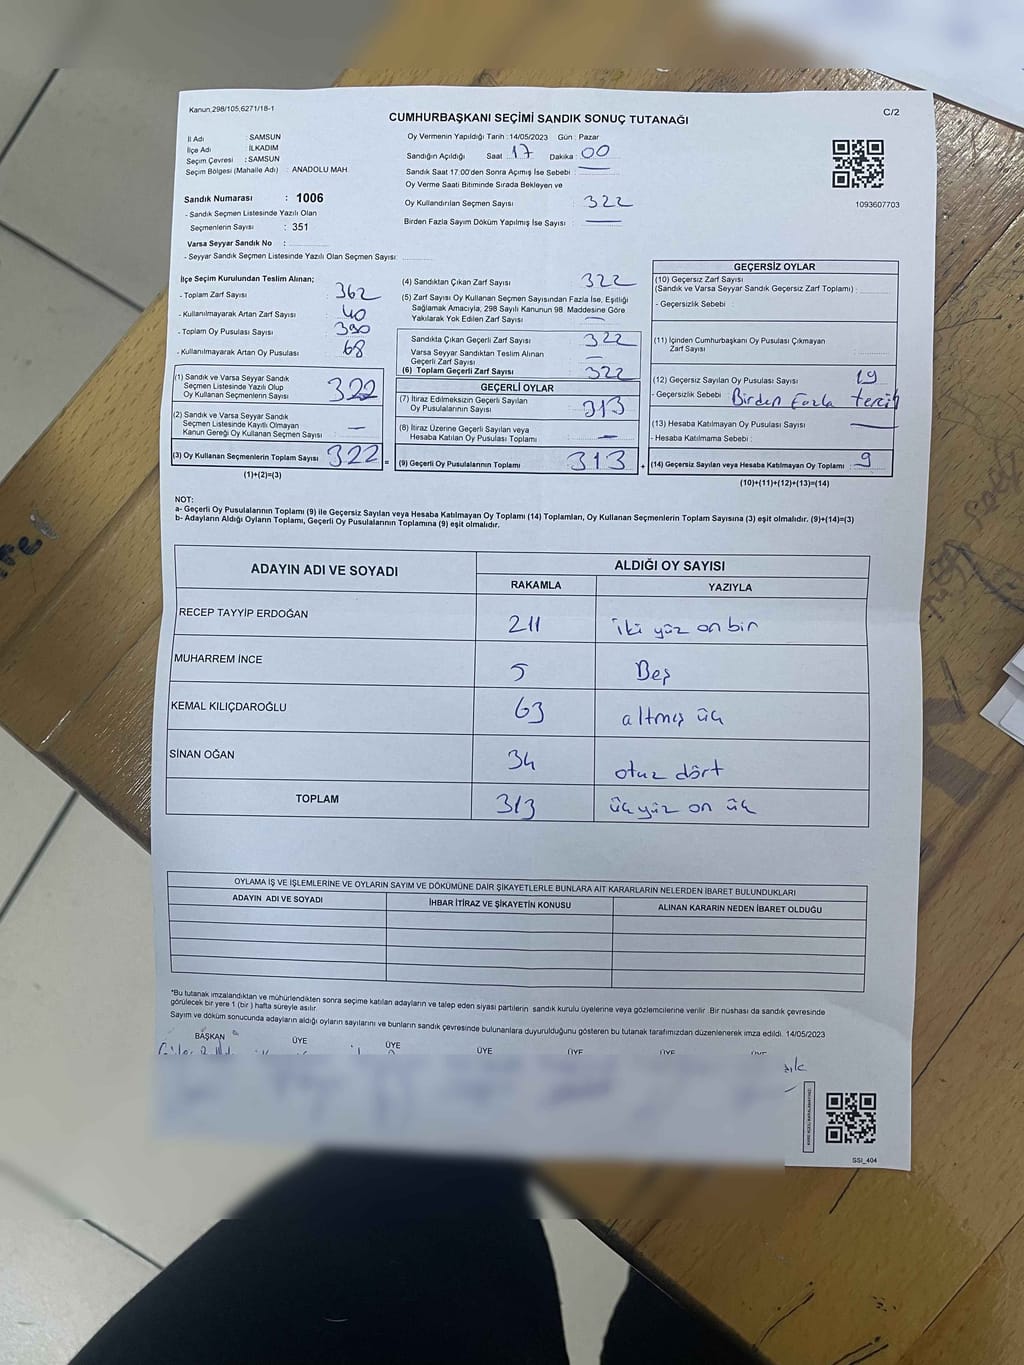 Kanun,298/105,6271/18-1
C/2
CUMHURBAŞKANI SEÇİMİ SANDIK SONUÇ TUTANAĞI
İl Adı : SAMSUN
İlçe Adı : İLKADIM
Seçim Çevresi : SAMSUN
Seçim Bölgesi (Mahalle Adı) : ANADOLU MAH.
Sandık Numarası : 1006
- Sandık Seçmen Listesinde Yazılı Olan
Seçmenlerin Sayısı : 351
Varsa Seyyar Sandık No :
- Seyyar Sandık Seçmen Listesinde Yazılı Olan Seçmen Sayısı
Oy Vermenin Yapıldığı Tarih : 14/05/2023 Gün : Pazar
Sandığın Açıldığı Saat : 17 Dakika : 00
Sandık Saat 17:00'den Sonra Açımış İse Sebebi :
Oy Verme Saati Bitiminde Sırada Bekleyen ve
Oy Kullandırılan Seçmen Sayısı : 322
Birden Fazla Sayım Döküm Yapılmış İse Sayısı :
1093607703
İlçe Seçim Kurulundan Teslim Alınan;
- Toplam Zarf Sayısı : 362
- Kullanılmayarak Artan Zarf Sayısı : 40
- Toplam Oy Pusulası Sayısı : 390
- Kullanılmayarak Artan Oy Pusulası : 68
(1) Sandık ve Varsa Seyyar Sandık
Seçmen Listesinde Yazılı Olup
Oy Kullanan Seçmenlerin Sayısı 322
(2) Sandık ve Varsa Seyyar Sandık
Seçmen Listesinde Kayıtlı Olmayan
Kanun Gereği Oy Kullanan Seçmen Sayısı —
(3) Oy Kullanan Seçmenlerin Toplam Sayısı 322 =
(1)+(2)=(3)
(4) Sandıktan Çıkan Zarf Sayısı : 322
(5) Zarf Sayısı Oy Kullanan Seçmen Sayısından Fazla İse, Eşitliği
Sağlamak Amacıyla, 298 Sayılı Kanunun 98. Maddesine Göre
Yakılarak Yok Edilen Zarf Sayısı : —
Sandıkta Çıkan Geçerli Zarf Sayısı : 322
Varsa Seyyar Sandıktan Teslim Alınan
Geçerli Zarf Sayısı : —
(6) Toplam Geçerli Zarf Sayısı : 322
GEÇERLİ OYLAR
(7) İtiraz Edilmeksizin Geçerli Sayılan
Oy Pusulalarının Sayısı : 313
(8) İtiraz Üzerine Geçerli Sayılan veya
Hesaba Katılan Oy Pusulası Toplamı : —
(9) Geçerli Oy Pusulalarının Toplamı 313 +
GEÇERSİZ OYLAR
(10) Geçersiz Zarf Sayısı
(Sandık ve Varsa Seyyar Sandık Geçersiz Zarf Toplamı) :
- Geçersizlik Sebebi :
(11) İçinden Cumhurbaşkanı Oy Pusulası Çıkmayan
Zarf Sayısı :
(12) Geçersiz Sayılan Oy Pusulası Sayısı :
- Geçersizlik Sebebi : Birden Fazla tercih
(13) Hesaba Katılmayan Oy Pusulası Sayısı :
- Hesaba Katılmama Sebebi :
(14) Geçersiz Sayılan veya Hesaba Katılmayan Oy Toplamı : 9
(10)+(11)+(12)+(13)=(14)
NOT:
a- Geçerli Oy Pusulalarının Toplamı (9) ile Geçersiz Sayılan veya Hesaba Katılmayan Oy Toplamı (14) Toplamları, Oy Kullanan Seçmenlerin Toplam Sayısına (3) eşit olmalıdır. (9)+(14)=(3)
b- Adayların Aldığı Oyların Toplamı, Geçerli Oy Pusulalarının Toplamına (9) eşit olmalıdır.
ADAYIN ADI VE SOYADI
ALDIĞI OY SAYISI
RAKAMLA YAZIYLA
RECEP TAYYİP ERDOĞAN 211 iki yüz on bir
MUHARREM İNCE 5 Beş
KEMAL KILIÇDAROĞLU 63 altmış üç
SİNAN OĞAN 34 otuz dört
TOPLAM 313 üçyüz on üç
OYLAMA İŞ VE İŞLEMLERİNE VE OYLARIN SAYIM VE DÖKÜMÜNE DAİR ŞİKAYETLERLE BUNLARA AİT KARARLARIN NELERDEN İBARET BULUNDUKLARI
ADAYIN ADI VE SOYADI İHBAR İTİRAZ VE ŞİKAYETİN KONUSU ALINAN KARARIN NEDEN İBARET OLDUĞU
*Bu tutanak imzalandıktan ve mühürlendikten sonra seçime katılan adayların ve talep eden siyasi partilerin sandık kurulu üyelerine veya gözlemcilerine verilir. Bir nüshası da sandık çevresinde
görülecek bir yere 1 (bir) hafta süreyle asılır.
Sayım ve döküm sonucunda adayların aldığı oyların sayılarını ve bunların sandık çevresinde bulunanlara duyurulduğunu gösteren bu tutanak tarafımızdan düzenlenerek imza edildi. 14/05/2023
BAŞKAN ÜYE ÜYE ÜYE ÜYE ÜYE ÜYE
SSI_404